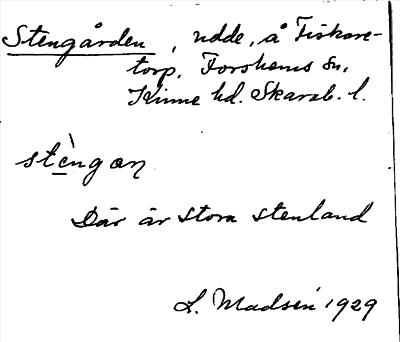 Stengården, udde, å Fiskare-
torp, Forshems sn,
Kinne hd. Skarab. l.
stèngan
Där är stora stenland
L. Madsén 1929